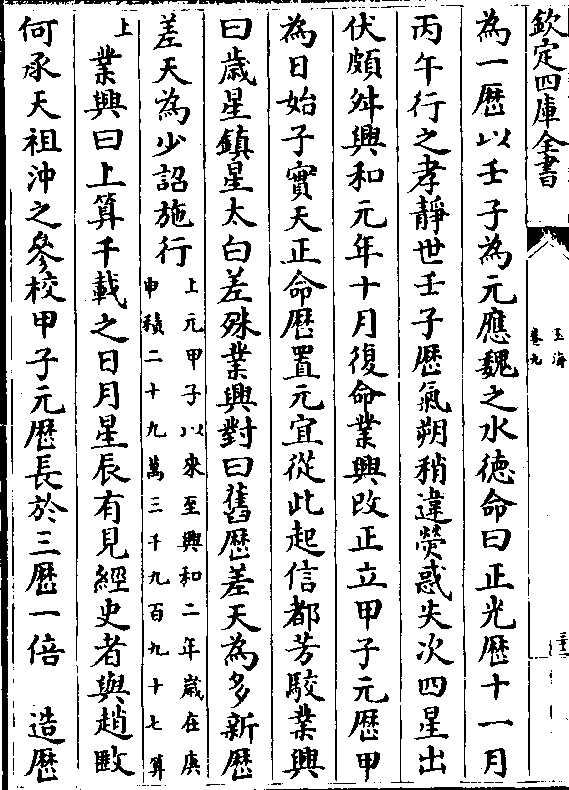 欽定四庫全書
玉海
卷九
為一厯以壬子為元應魏之水德命曰正光厯十一月
丙午行之孝靜世壬子厯氣朔稍違熒惑失次四星出
伏頗舛興和元年十月復命業興改正立甲子元厯甲
為日始子實天正命厯置元宜從此起信都芳駮業興
曰歲星鎮星太白差殊業興對曰舊厯差天為多新厯
差天為少詔施行
上元甲子以來至興和二年歲在庚
申積二十九萬三千九百九十七算
上
業興曰上算千載之日月星辰有見經史者與趙𢾺
何承天祖沖之參校甲子元厯長於三厯一倍　造厯